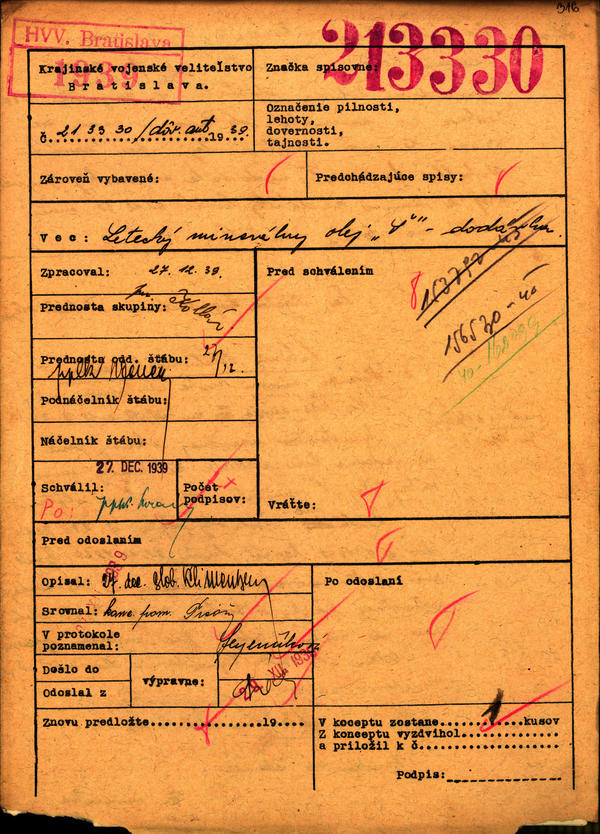 316
HVV. Bratislava
1939
213330
Krajinské vojenské veliteľstvo
Bratislava.
Značka spisovne:
č. 213330/dôv.aut 1939.
Označenie pilnosti,
lehoty,
dovernosti,
tajnosti.
Zároveň vybavené:
Predchádzajúce spisy:
Vec: Letecký minerálny olej „4" - dodávka.
Zpracoval: 27.12.39.
Pred schválením
Prednosta skupiny:
156570-40
Prednosta odd. štábu: 27/12.
Podnáčelník štábu:
Náčelník štábu:
27. DEC. 1939
Schválil:
Počet
podpisov:
Vráťte:
Pred odoslaním
Opísal: 27. dec. slob.
Po odoslaní
Srovnal: kanc. pom.
V protokole
poznamenal:
Došlo do
výpravne:
Odoslal z
Znovu predložte 19
V koceptu zostane 1 kusov
Z konceptu vyzdvihol
a priložil k č.
Podpis: